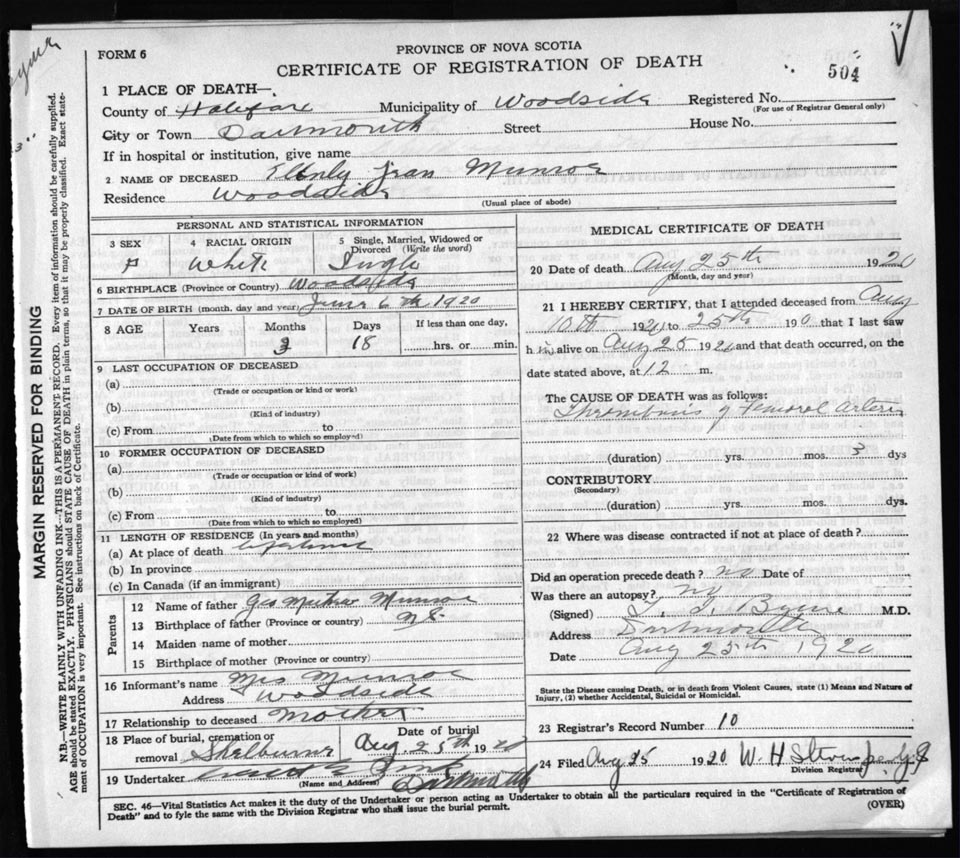 FORM 6
PROVINCE OF NOVA SCOTIA
CERTIFICATE OF REGISTRATION OF DEATH
504
1 PLACE OF DEATH—
County of Halifax Municipality of Woodside Registered No.
(For use of Registrar General only)
City or Town Dartmouth Street House No.
If in hospital or institution, give name
2 NAME OF DECEASED Jean Munroe
Residence Woodside (Usual place of abode)
PERSONAL AND STATISTICAL INFORMATION
3 SEX 4 RACIAL ORIGIN 5 Single, Married, Widowed or Divorced (Write the word)
F White Single
6 BIRTHPLACE (Province or Country) Woodside
7 DATE OF BIRTH (month, day and year) June 6th 1920
8 AGE Years Months Days If less than one day,
18 hrs. or min.
9 LAST OCCUPATION OF DECEASED
(a)
(Trade or occupation or kind or work)
(b)
(Kind of industry)
(c) From to
(Date from which to which so employed)
10 FORMER OCCUPATION OF DECEASED
(a)
(Trade or occupation or kind of work)
(b)
(Kind of industry)
(c) From to
(Date from which to which so employed)
11 LENGTH OF RESIDENCE (In years and months)
(a) At place of death lifetime
(b) In province
(c) In Canada (if an immigrant)
Parents
12 Name of father Geo Munroe
13 Birthplace of father (Province or country) N S
14 Maiden name of mother
15 Birthplace of mother (Province or country)
16 Informant's name Mrs Munroe
Address Woodside
17 Relationship to deceased Mother
18 Place of burial, cremation or removal Shelburne Date of burial Aug 25th 1920
19 Undertaker Dartmouth
(Name and Address)
MEDICAL CERTIFICATE OF DEATH
20 Date of death Aug 25th 1920
(Month, day and year)
21 I HEREBY CERTIFY, that I attended deceased from Aug
10th 1920 to 25th 190 that I last saw
h im alive on Aug 25 1920 and that death occurred, on the
date stated above, at 12 m.
The CAUSE OF DEATH was as follows:
Thrombosis of Femoral Artery
(duration) yrs. mos. 3 dys
CONTRIBUTORY
(Secondary)
(duration) yrs. mos. dys.
22 Where was disease contracted if not at place of death?
Did an operation precede death? no Date of
Was there an autopsy? no
(Signed) Byrne M.D.
Address Dartmouth
Date Aug 25th 1920
State the Disease causing Death, or in death from Violent Causes, state (1) Means and Nature of
Injury, (2) whether Accidental, Suicidal or Homicidal.
23 Registrar's Record Number 10
24 Filed Aug 25 1920 W. H
Division Registrar
SEC. 46—Vital Statistics Act makes it the duty of the Undertaker or person acting as Undertaker to obtain all the particulars required in the "Certificate of Registration of
Death" and to fyle the same with the Division Registrar who shall issue the burial permit.
(OVER)
MARGIN RESERVED FOR BINDING
N.B.—WRITE PLAINLY WITH UNFADING INK—THIS IS A PERMANENT RECORD. Every item of information should be carefully supplied.
AGE should be stated EXACTLY. PHYSICIANS should STATE CAUSE OF DEATH in plain terms, so that it may be properly classified. Exact state-
ment of OCCUPATION is very important. See instructions on back of Certificate.